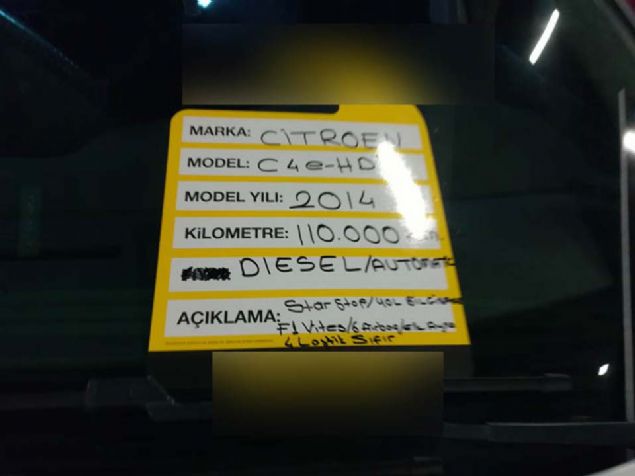 MARKA: CİTROEN
MODEL: C4 e-HD
MODEL YILI: 2014
KİLOMETRE: 110.000
DIESEL/AUTOMATİK
AÇIKLAMA: Star Stop/YOL
F1 Vites/6 Airbag/
4 Lastik Sıfır